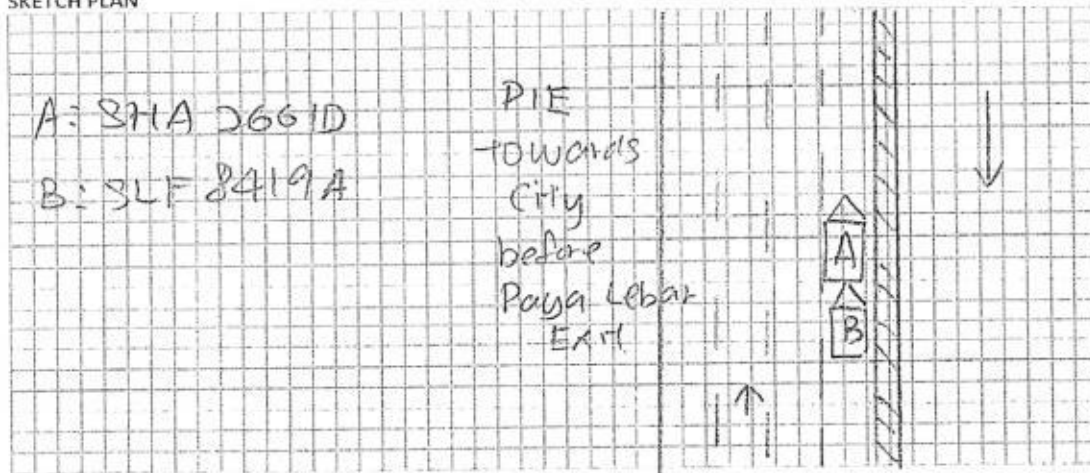 SKETCH PLAN
A: SHA 2661D
B: SLF 8419A
PIE
towards
City
before
Paya Lebar
Exit
A
B